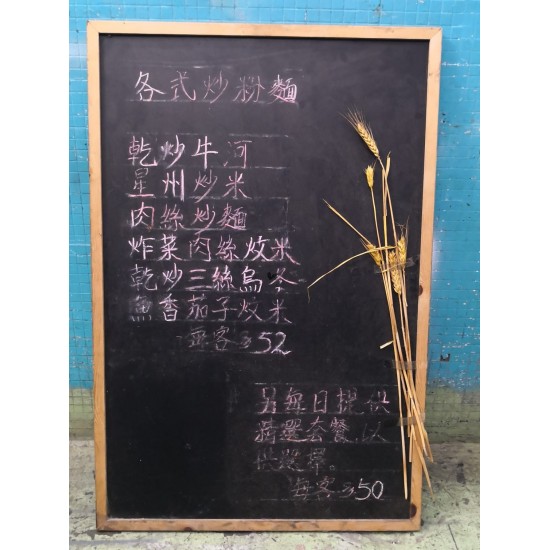 各式炒粉麵
乾炒牛河
星州炒米
肉絲炒麵
炸菜肉絲炆米
乾炒三絲烏冬
魚香茄子炆米
每客$52
另每日提供
精選套餐以
供選擇。
每客$50